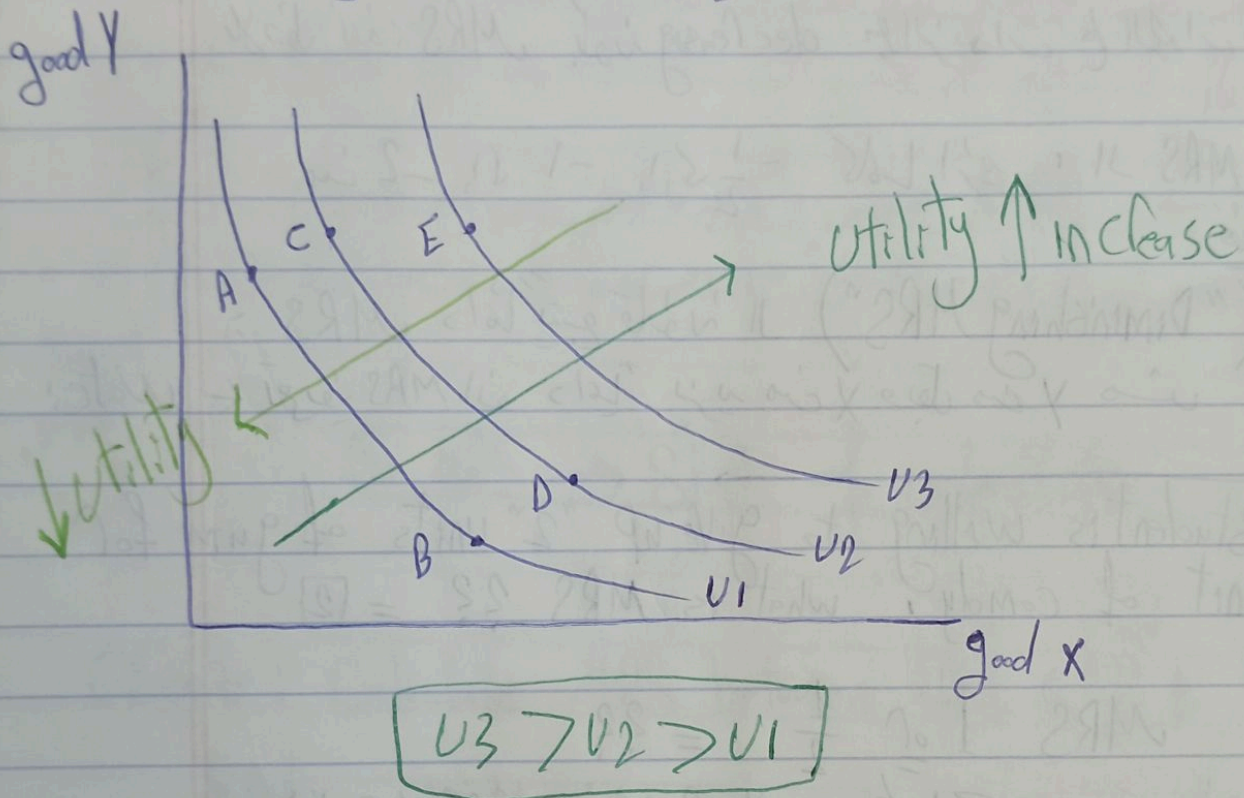 good Y
Utility ↑ increase
C
E
A
↓ Utility
D
U3
B
U2
U1
good X
U3 > U2 > U1